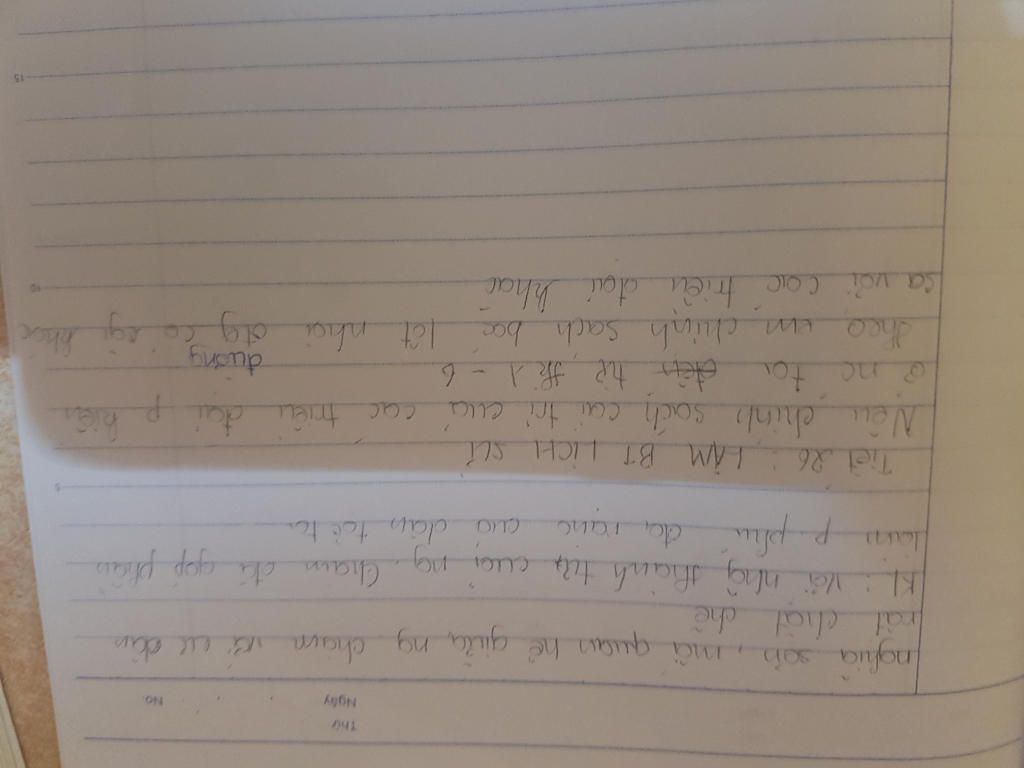 Thứ
Ngày No.
nghĩa sơn, mà quan hệ giữa ng chăm và cư dân
rất chặt chẽ
KL: Với nhg thành tựu của ng. Chăm đã góp phần
làm p. phú đa dạng của dân tộc ta
5
Tiết 26: LÀM BT LỊCH SỬ
Nêu chính sách cai trị của các triều đại p kiến
ở nc ta từ tk 1 - 6
đường
theo em chính sách bóc lột nhà đg có gì khác
sa với các triều đại khác
10
15